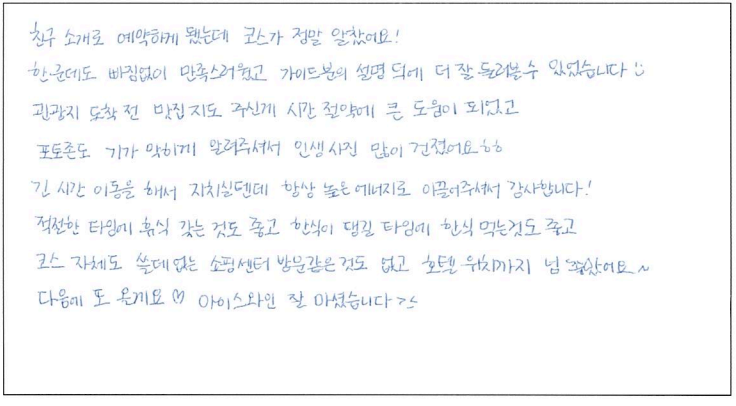 친구 소개로 예약하게 됐는데 코스가 정말 알찼어요!
한군데도 빠짐없이 만족스러웠고 가이드분의 설명 덕에 더 잘 둘러볼 수 있었습니다 :)
관광지 도착 전 맛집 지도 주신게 시간 절약에 큰 도움이 되었고
포토존도 기가 막히게 알려주셔서 인생사진 많이 건졌어요ㅎㅎ
긴 시간 이동을 해서 지치실텐데 항상 높은 에너지로 이끌어주셔서 감사합니다!
적절한 타임에 휴식 갖는 것도 좋고 한식이 땡길 타임에 한식 먹는것도 좋고
코스 자체도 쓸데없는 쇼핑센터 방문같은것도 없고 호텔 위치까지 넘 좋았어요~
다음에 또 올게요♡ 아이스와인 잘 마셨습니다 >.<